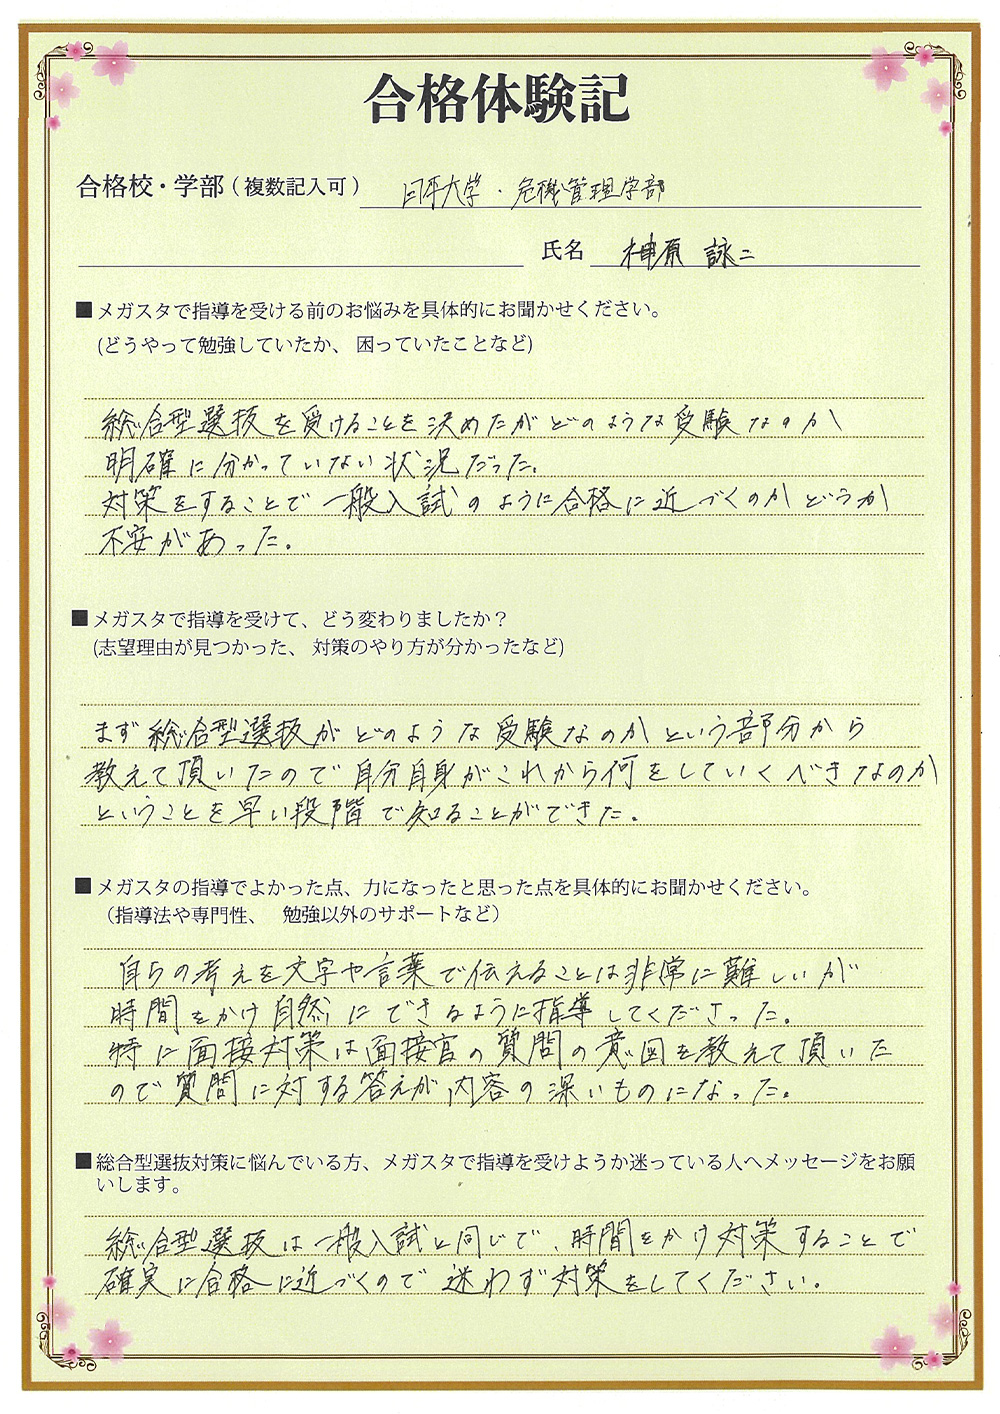 合格体験記
合格校・学部（複数記入可） 日本大学・危機管理学部
氏名 榊原 詠二
■メガスタで指導を受ける前のお悩みを具体的にお聞かせください。
(どうやって勉強していたか、困っていたことなど)
総合型選抜を受けることを決めたがどのような受験なのか
明確に分かっていない状況だった。
対策をすることで一般入試のように合格に近づくのかどうか
不安があった。
■メガスタで指導を受けて、どう変わりましたか？
(志望理由が見つかった、対策のやり方が分かったなど)
まず総合型選抜がどのような受験なのかという部分から
教えて頂いたので自分自身がこれから何をしていくべきなのか
ということを早い段階で知ることができた。
■メガスタの指導でよかった点、力になったと思った点を具体的にお聞かせください。
（指導法や専門性、 勉強以外のサポートなど）
自らの考えを文字や言葉で伝えることは非常に難しいが
時間をかけ自然にできるように指導してくださった。
特に面接対策は面接官の質問の意図を教えて頂いた
ので質問に対する答えが内容の深いものになった。
■総合型選抜対策に悩んでいる方、メガスタで指導を受けようか迷っている人へメッセージをお願
いします。
総合型選抜は一般入試と同じで、時間をかけ対策することで
確実に合格に近づくので迷わず対策をしてください。